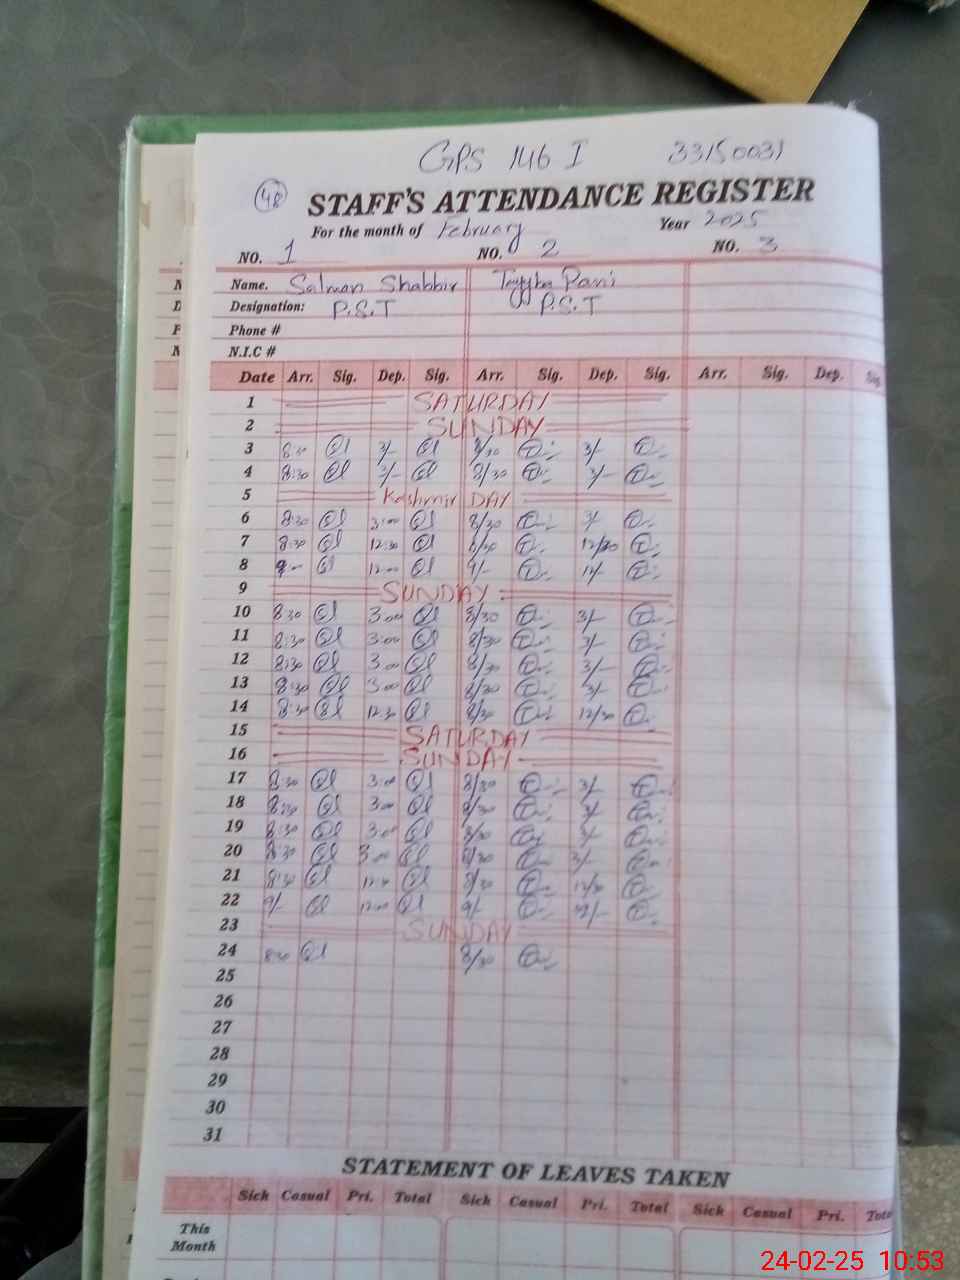 GPS 146 I 33150031
48 STAFF'S ATTENDANCE REGISTER
For the month of February Year 2025
NO. 1 NO. 2 NO. 3
Name. Salman Shabbir
Designation: P.S.T P.S.T
Phone #
N.I.C #
Date Arr. Sig. Dep. Sig. Arr. Sig. Dep. Sig. Arr. Sig. Dep. Sig.
1 SATURDAY
2 SUNDAY
3 8:30 3/- 8/30 3/-
4 8:30 3/- 8/30 3/-
5 Kashmir DAY
6 8:30 3:00 8/30 3/-
7 8:30 12:30 8/30 12/30
8 9:00 12:00 9/- 12/-
9 SUNDAY
10 8:30 3:00 8/30 3/-
11 8:30 3:00 8/30 3/-
12 8:30 3:00 8/30 3/-
13 8:30 3:00 8/30 3/-
14 8:30 12:30 8/30 12/30
15 SATURDAY
16 SUNDAY
17 8:30 3:00 8/30 3/-
18 8:30 3:00 8/30 3/-
19 8:30 3:00 8/30 3/-
20 8:30 3:00 8/30 3/-
21 8:30 12:30 8/30 12/30
22 9/- 12:00 9/- 12/-
23 SUNDAY
24 8:30 8/30
25
26
27
28
29
30
31
STATEMENT OF LEAVES TAKEN
Sick Casual Pri. Total Sick Casual Pri. Total Sick Casual Pri. Total
This
Month
24-02-25 10:53